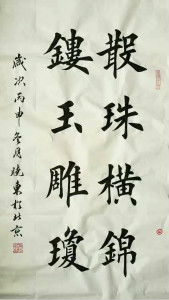 散珠橫錦
鏤玉雕瓊
歲次丙申冬月曉東於北京